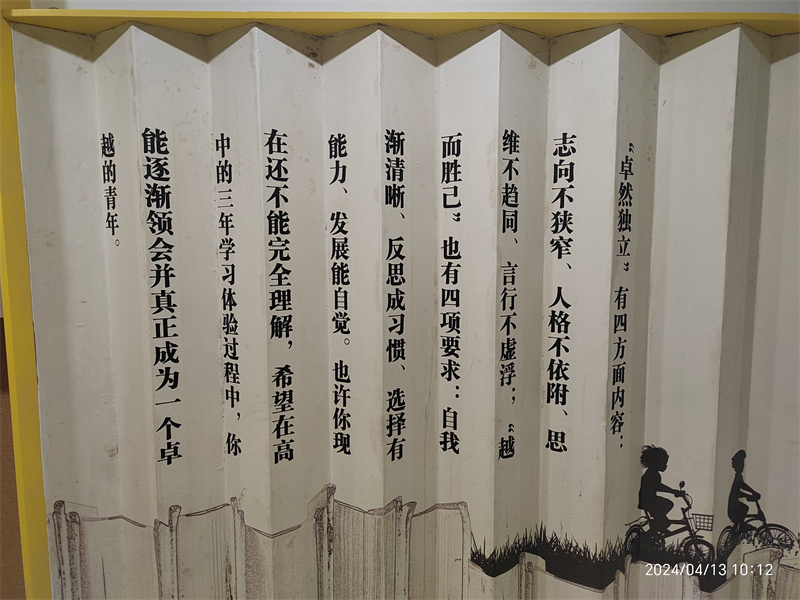 “卓然独立”有四方面内容：
志向不狭窄、人格不依附、思
维不趋同、言行不虚浮；“越
而胜己”也有四项要求：自我
渐清晰、反思成习惯、选择有
能力、发展能自觉。也许你现
在还不能完全理解，希望在高
中的三年学习体验过程中，你
能逐渐领会并真正成为一个卓
越的青年。
2024/04/13 10:12